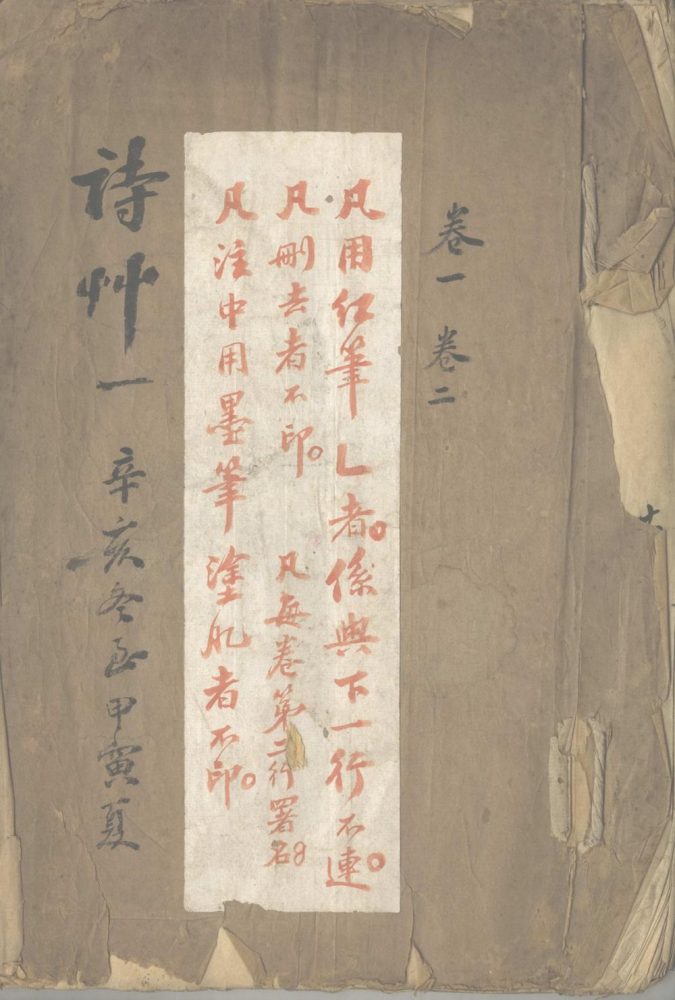 卷一 卷二
凡用红筆乚者。係與下一行不連。
凡刪去者不印。 凡每卷第二行署名
凡注中用墨筆塗㐆者不印。
詩艸一 辛亥冬至甲寅夏
十